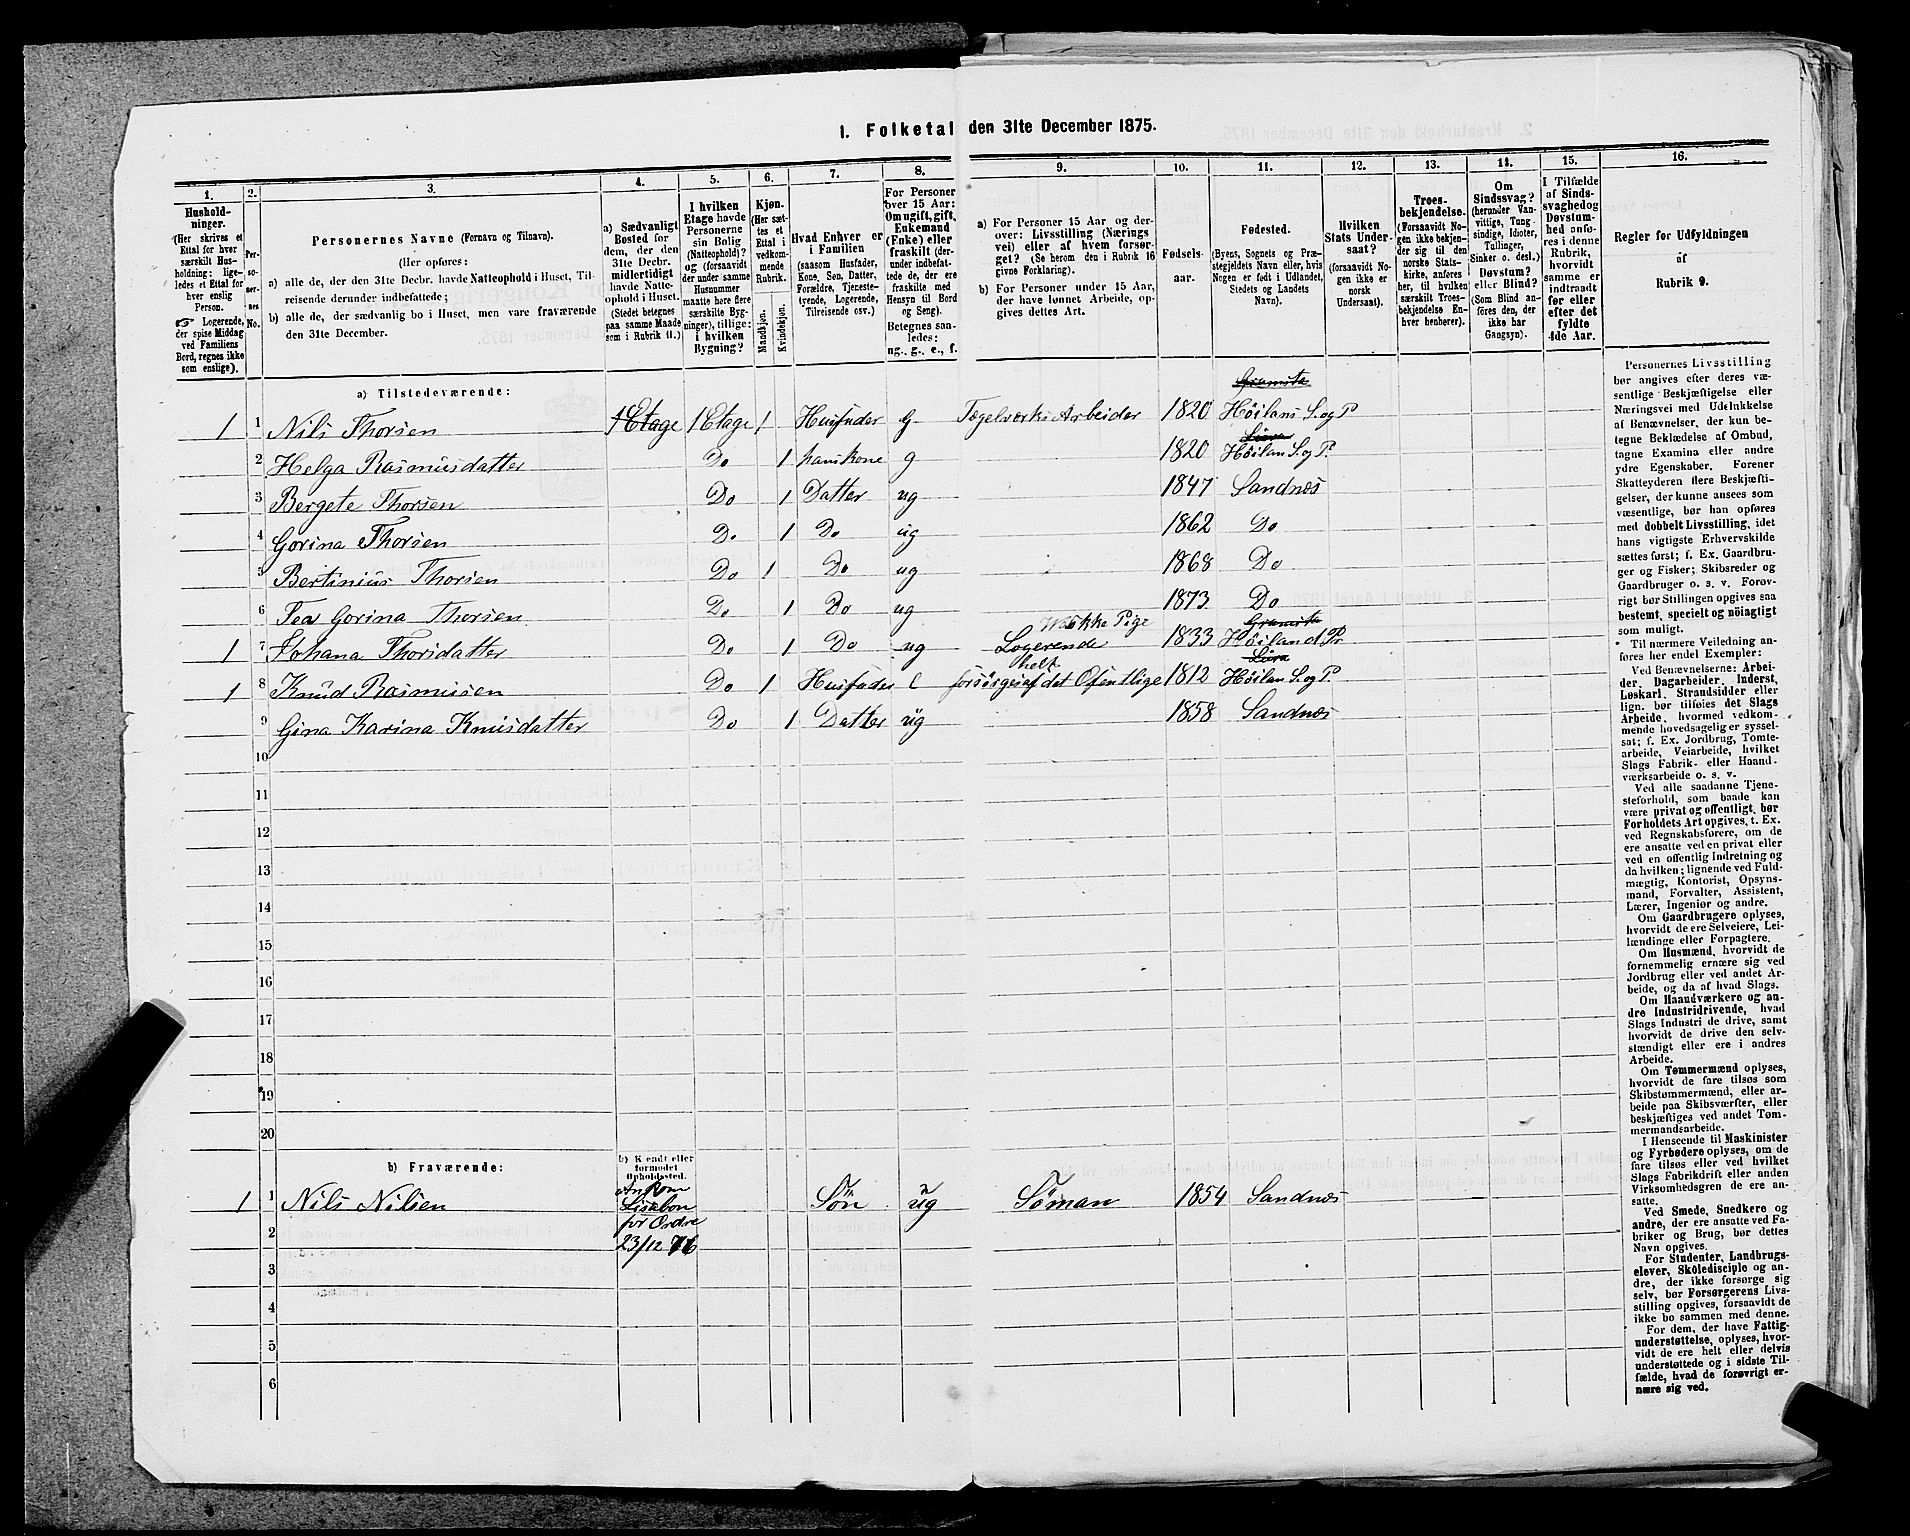 1. Folketal den 31te December 1875.
1. 2. 3. 4. 5. 6. 7. 8. 9. 10. 11. 12. 13. 14. 15. 16.
Hushold-
ninger.
(Her skrives et
Ettal for hver
særskilt Hus-
holdning; lige-
ledes et Ettal for
hver enslig
Person.
☞ Logerende,
der spise Middag
ved Familiens
Bord, regnes ikke
som enslige).
Per-
so-
ner-
nes
No.
Personernes Navne (Fornavn og Tilnavn).
(Her opføres:
a) alle de, der den 31te Decbr. havde Natteophold i Huset, Til-
reisende derunder indbefattede;
b) alle de, der sædvanlig bo i Huset, men vare fraværende
den 31te December.
a) Sædvanligt
Bosted for
dem, der den
31te Decbr.
midlertidigt
havde Natte-
ophold i Huset.
(Stedet betegnes
paa samme Maade
som i Rubrik 11.)
I hvilken
Etage havde
Personerne
sin Bolig
(Natteophold)?
og (forsaavidt
der under samme
Husnummer
maatte høre flere
særskilte Byg-
ninger), tillige:
i hvilken
Bygning?
Kjøn.
(Her sæt-
tes et
Ettal i
vedkom-
mende
Rubrik.
Mandkjøn.
Kvindekjøn.
Hvad Enhver er
i Familien
(saasom Husfader,
Kone, Søn, Datter,
Forældre, Tjeneste-
tyende, Logerende,
Tilreisende osv.)
For Personer
over 15 Aar:
Om ugift, gift,
Enkemand
(Enke) eller
fraskilt (der-
under indbefat-
tede de, der ere
fraskilte med
Hensyn til Bord
og Seng).
Betegnes saa-
ledes:
ug., g., e., f.
a) For Personer 15 Aar og der-
over: Livsstilling (Nærings
vei) eller af hvem forsør-
get? (Se herom den i Rubrik 16
givne Forklaring).
b) For Personer under 15 Aar,
der have lønnet Arbeide, op-
gives dettes Art.
Fødsels-
aar.
Fødested.
(Byens, Sognets og Præ-
stegjeldets Navn eller, hvis
Nogen er født i Udlandet,
Stedets og Landets
Navn).
Hvilken
Stats Under-
saat?
(forsaavidt No-
gen ikke er
norsk
Undersaat).
Troes-
bekjendelse.
(Forsaavidt No-
gen ikke bekjen-
der sig til den
norske Stats-
kirke, anføres
her, til hvilken
særskilt Troes-
bekjendelse En-
hver henhører).
Om
Sindssvag?
(herunder Van-
vittige, Tung-
sindige, Idioter,
Tullinger,
Sinker o. desl.)
Døvstum?
eller Blind?
(Som Blind an-
føres den, der
ikke har
Gangsyn).
I Tilfælde
af Sinds-
svaghed og
Døvstum-
hed anfø-
res i denne
Rubrik,
hvorvidt
samme er
indtraadt
før eller
efter det
fyldte
4de Aar.
Regler for Udfyldningen
af
Rubrik 9.
a) Tilstedeværende:
1 1 Nils Thorsen 1 Etage 1 Etage 1 Husfader G Tegelværks Arbeider 1820 Høilans S. og P
2 Helga Rasmusdatter Do 1 hans kone g 1820 Høilan S. og P.
3 Bergete Thorsen Do 1 Datter ug 1847 Sandnæs
4 Gorina Thorsen Do 1 Do ug 1862 Do
5 Bertinius Thorsen Do 1 Do ug 1868 Do
6 Tea Gorina Thorsen Do 1 Do ug 1873 Do
Wakke Pige
1 7 Johana Thorsdatter Do 1 Do ug Logerende 1833 Høiland Pr
helt
1 8 Knud Rasmusen Do 1 Husfader E forsørges af det Ofentlige 1812 Høilan S. og P
9 Gina Karina Knusdatter Do 1 Datter ug 1858 Sandnæs
10
11
12
13
14
15
16
17
18
19
20
b) Fraværende:
b) Kjendt eller
formodet
Opholdssted.
1 1 Nils Nilsen Søn ug Søman 1854 Sandnæs
Ankom
Lisabon
for Ordre
23/12 76
2
3
4
5
6
Personernes Livsstilling
bør angives efter deres væ-
sentlige Beskjæftigelse eller
Næringsvei med Udelukkelse
af Benævnelser, der kun be-
tegne Beklædelse af Ombud,
tagne Examina eller andre
ydre Egenskaber. Forener
Skatteyderen flere Beskjæfti-
gelser, der kunne ansees som
væsentlige, bør han opføres
med dobbelt Livsstilling, idet
hans vigtigste Erhvervskilde
sættes først; f. Ex. Gaardbru-
ger og Fisker; Skibsreder og
Gaardbruger o. s. v. Forøv-
rigt bør Stillingen opgives saa
bestemt, specielt og nøiagtigt
som muligt.
* Til nærmere Veiledning an-
føres her endel Exempler:
Ved Benævnelserne: Arbei-
der, Dagarbeider, Inderst,
Løskarl, Strandsidder eller
lign. bør tilføies det Slags
Arbeide, hvormed vedkom-
mende hovedsagelig er syssel-
sat; f. Ex. Jordbrug, Tomte-
arbeide, Veiarbeide, hvilket
Slags Fabrik- eller Haand-
værksarbeide o. s. v.
Ved alle saadanne Tjene-
steforhold, som baade kan
være privat og offentligt, bør
Forholdets Art opgives, t. Ex.
ved Regnskabsførere, om de
ere ansatte ved en privat eller
ved en offentlig Indretning og
da hvilken; lignende ved Fuld-
mægtig, Kontorist, Opsyns-
mand, Forvalter, Assistent,
Lærer, Ingeniør og andre.
Om Gaardbrugere oplyses,
hvorvidt de ere Selveiere, Lei-
lændinge eller Forpagtere.
Om Husmænd, hvorvidt de
fornemmelig ernære sig ved
Jordbrug eller ved andet Ar-
beide, og da af hvad Slags.
Om Haandværkere og an-
dre Industridrivende, hvad
Slags Industri de drive, samt
hvorvidt de drive den selv-
stændigt eller ere i andres
Arbeide.
Om Tømmermænd oplyses,
hvorvidt de fare tilsøs som
Skibstømmermænd, eller ar-
beide paa Skibsværfter, eller
beskjæftiges ved andet Tøm-
mermandsarbeide.
I Henseende til Maskinister
og Fyrbødere oplyses, om de
fare tilsøs eller ved hvilket
Slags Fabrikdrift eller anden
Virksomhedsgren de ere an-
satte.
Ved Smede, Snedkere og
andre, der ere ansatte ved Fa-
briker og Brug, bør dettes
Navn opgives.
For Studenter, Landbrugs-
elever, Skoledisciple og an-
dre, der ikke forsørge sig
selv, bør Forsørgerens Livs-
stilling opgives, forsaavidt de
ikke bo sammen med denne.
For dem, der have Fattig-
understøttelse, oplyses, hvor-
vidt de ere helt eller delvis
understøttede og i sidste Til-
fælde, hvad de forøvrigt er-
nære sig ved.